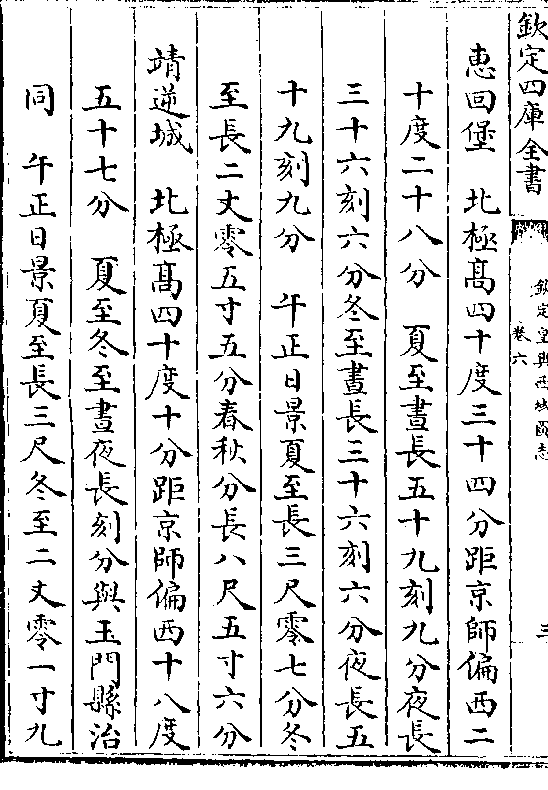 欽定四庫全書
欽定皇輿西域圖志
卷六
三
惠回堡　北極髙四十度三十四分距京師偏西二
十度二十八分　夏至晝長五十九刻九分夜長
三十六刻六分冬至晝長三十六刻六分夜長五
十九刻九分　午正日景夏至長三尺零七分冬
至長二丈零五寸五分春秋分長八尺五寸六分
靖逆城　北極髙四十度十分距京師偏西十八度
五十七分　夏至冬至晝夜長刻分與玉門縣治
同　午正日景夏至長三尺冬至二丈零一寸九